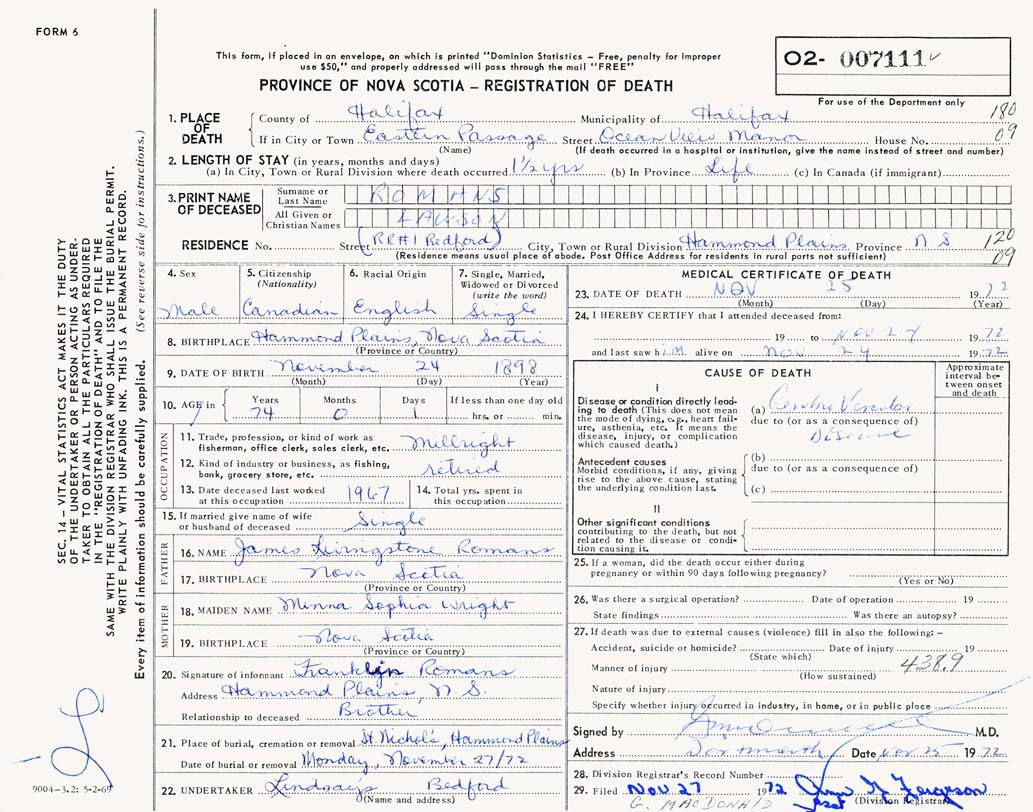 FORM 6
This form, if placed in an envelope, on which is printed "Dominion Statistics – Free, penalty for Improper
use $50," and properly addressed will pass through the mail "FREE"
PROVINCE OF NOVA SCOTIA – REGISTRATION OF DEATH
O2- 007111
For use of the Department only
180
09
1. PLACE OF DEATH
County of Halifax Municipality of Halifax
If in City or Town Eastern Passage Street Ocean View Manor House No.
(Name) (If death occurred in a hospital or institution, give the name instead of street and number)
2. LENGTH OF STAY (in years, months and days)
(a) In City, Town or Rural Division where death occurred 1½ yrs (b) In Province Life (c) In Canada (if immigrant)
3. PRINT NAME OF DECEASED
Surname or Last Name ROMANS
All Given or Christian Names LAWSON
RESIDENCE No. Street (RR#1 Bedford) City, Town or Rural Division Hammond Plains Province N S
120
09
(Residence means usual place of abode. Post Office Address for residents in rural parts not sufficient)
4. Sex
Male
5. Citizenship
(Nationality)
Canadian
6. Racial Origin
English
7. Single, Married,
Widowed or Divorced
(write the word)
Single
8. BIRTHPLACE Hammond Plains, Nova Scotia
(Province or Country)
9. DATE OF BIRTH November 24 1898
(Month) (Day) (Year)
10. AGE in
Years Months Days If less than one day old
74 0 1 hrs. or min.
OCCUPATION
11. Trade, profession, or kind of work as
fisherman, office clerk, sales clerk, etc. Millright
12. Kind of industry or business, as fishing,
bank, grocery store, etc. retired
13. Date deceased last worked
at this occupation 1967
14. Total yrs. spent in
this occupation
15. If married give name of wife
or husband of deceased Single
FATHER
16. NAME James Livingstone Romans
17. BIRTHPLACE Nova Scotia
(Province or Country)
MOTHER
18. MAIDEN NAME Minna Sophia Wright
19. BIRTHPLACE Nova Scotia
(Province or Country)
20. Signature of informant Franklin Romans
Address Hammond Plains, N.S.
Relationship to deceased Brother
21. Place of burial, cremation or removal St Nichol's, Hammond Plains
Date of burial or removal Monday, November 27/72
22. UNDERTAKER Lindsay's Bedford
(Name and address)
MEDICAL CERTIFICATE OF DEATH
23. DATE OF DEATH NOV 25 1972
(Month) (Day) (Year)
24. I HEREBY CERTIFY that I attended deceased from:
19 to NOV 24 1972
and last saw him alive on NOV 24 1972
CAUSE OF DEATH
Approximate
interval be-
tween onset
and death
I
Disease or condition directly lead-
ing to death (This does not mean
the mode of dying, e.g., heart failure,
asthenia, etc. It means the
disease, injury, or complication
which caused death.)
(a) Cerebro Vascular
due to (or as a consequence of)
Disease
Antecedent causes
Morbid conditions, if any, giving
rise to the above cause, stating
the underlying condition last.
(b)
due to (or as a consequence of)
(c)
II
Other significant conditions
contributing to the death, but not
related to the disease or condi-
tion causing it.
25. If a woman, did the death occur either during
pregnancy or within 90 days following pregnancy?
(Yes or No)
26. Was there a surgical operation? Date of operation 19
State findings Was there an autopsy?
27. If death was due to external causes (violence) fill in also the following: –
Accident, suicide or homicide? Date of injury 19
(State which)
438.9
Manner of injury
(How sustained)
Nature of injury
Specify whether injury occurred in industry, in home, or in public place
Signed by M.D.
Address Dartmouth Date NOV 25 1972
28. Division Registrar's Record Number
29. Filed NOV 27 1972 Ferguson
(Division Registrar)
G. MACDONALD Asst
SEC. 14 – VITAL STATISTICS ACT MAKES IT THE DUTY
OF THE UNDERTAKER OR PERSON ACTING AS UNDER-
TAKER TO OBTAIN ALL THE PARTICULARS REQUIRED
IN THE "REGISTRATION OF DEATH" AND TO FILE THE
SAME WITH THE DIVISION REGISTRAR WHO SHALL ISSUE THE BURIAL PERMIT.
WRITE PLAINLY WITH UNFADING INK. THIS IS A PERMANENT RECORD.
Every item of information should be carefully supplied. (See reverse side for instructions.)
9004–3.2: 5-2-69